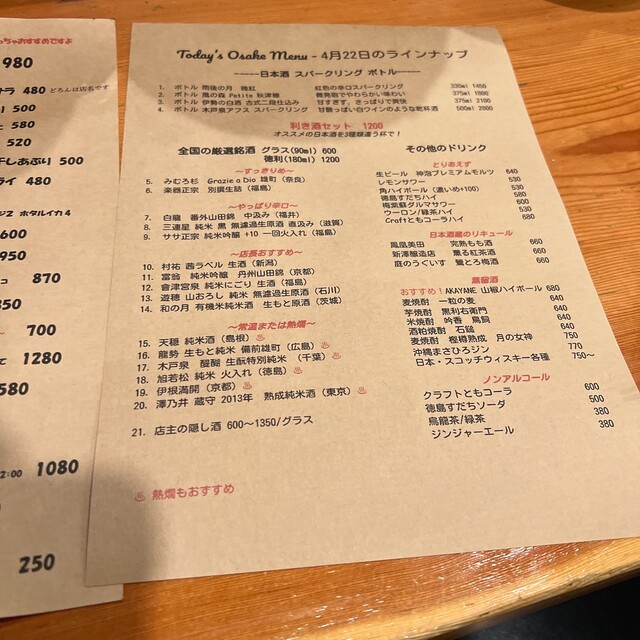 っちゃおすすめですよ
980
サラ 480 どろんは店名です
500
580
干しあぶり 500
ライ 480
ジ2 ホタルイカ4
600
950
870
350
700
て 1280
580
2:00 1080
250
Today's Osake Menu - 4月22日のラインナップ
-----日本酒 スパークリング ボトル-----
1. ボトル 雨後の月 微紅 紅色の辛口スパークリング 330ml 1450
2. ボトル 風の森 Petite 秋津穂 微発泡でやわらかい味わい 375ml 1800
3. ボトル 伊勢の白酒 古式二段仕込み 甘すぎず、さっぱりで爽快 375ml 2100
4. ボトル 木戸泉アフス スパークリング 甘酸っぱい白ワインのような乾杯酒 500ml 2800
利き酒セット 1200
オススメの日本酒を3種類違う杯で！
全国の厳選銘酒 グラス(90ml) 600
徳利(180ml) 1200
～すっきりめ～
5. みむろ杉 Grazie a Dio 雄町（奈良）
6. 楽器正宗 別撰生詰（福島）
～やっぱり辛口～
7. 白龍 番外山田錦 中汲み（福井）
8. 三連星 純米 黒 無濾過生原酒 直汲み（滋賀）
9. ササ正宗 純米吟醸 +10 一回火入れ（福島）
～店長おすすめ～
10. 村祐 茜ラベル 生酒（新潟）
11. 富翁 純米吟醸 丹州山田錦（京都）
12. 會津宮泉 純米にごり 生酒（福島）
13. 遊穂 山おろし 純米 無濾過生原酒（石川）
14. 和の月 有機米純米酒 生もと原酒（茨城）
～常温または熱燗～
15. 天穏 純米酒（島根）♨
16. 龍勢 生もと純米 備前雄町（広島）♨
17. 木戸泉 醍醐 生酛特別純米 （千葉）♨
18. 旭若松 純米 火入れ（徳島）♨
19. 伊根満開（京都）♨
20. 澤乃井 蔵守 2013年 熟成純米酒（東京）♨
21. 店主の隠し酒 600～1350/グラス
♨ 熱燗もおすすめ
その他のドリンク
とりあえず
生ビール 神泡プレミアムモルツ 640
レモンサワー 530
角ハイボール（濃いめ+100） 530
徳島すだちハイ 580
梅紫蘇ダルマサワー 600
ウーロン/緑茶ハイ 530
Craftともコーラハイ 680
日本酒蔵のリキュール
鳳凰美田 完熟もも酒 660
新澤醸造店 薫る紅茶酒 660
庭のうぐいす 鶯とろ梅酒 660
蒸留酒
おすすめ！AKAYANE 山椒ハイボール 680
麦焼酎 一粒の麦
芋焼酎 黒利右衛門
米焼酎 吟香 鳥飼
酒粕焼酎 石鎚
麦焼酎 樫樽熟成 月の女神 750
沖縄まさひろジン 770
日本・スコッチウィスキー各種 750～
ノンアルコール
クラフトともコーラ 600
徳島すだちソーダ 500
烏龍茶/緑茶 380
ジンジャーエール 380